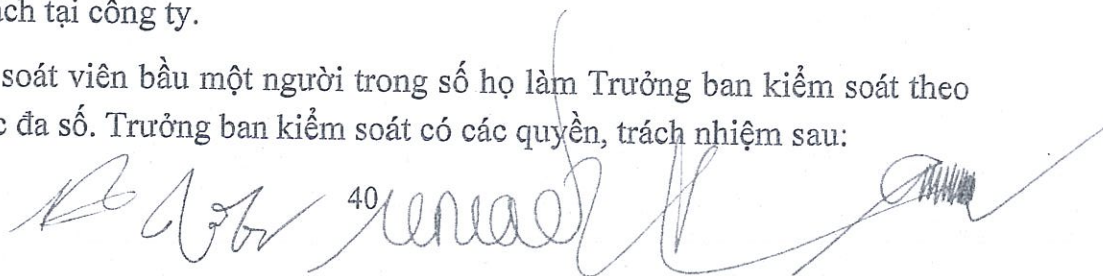 ách tại công ty.
soát viên bầu một người trong số họ làm Trưởng ban kiểm soát theo
đa số. Trưởng ban kiểm soát có các quyền, trách nhiệm sau:
40